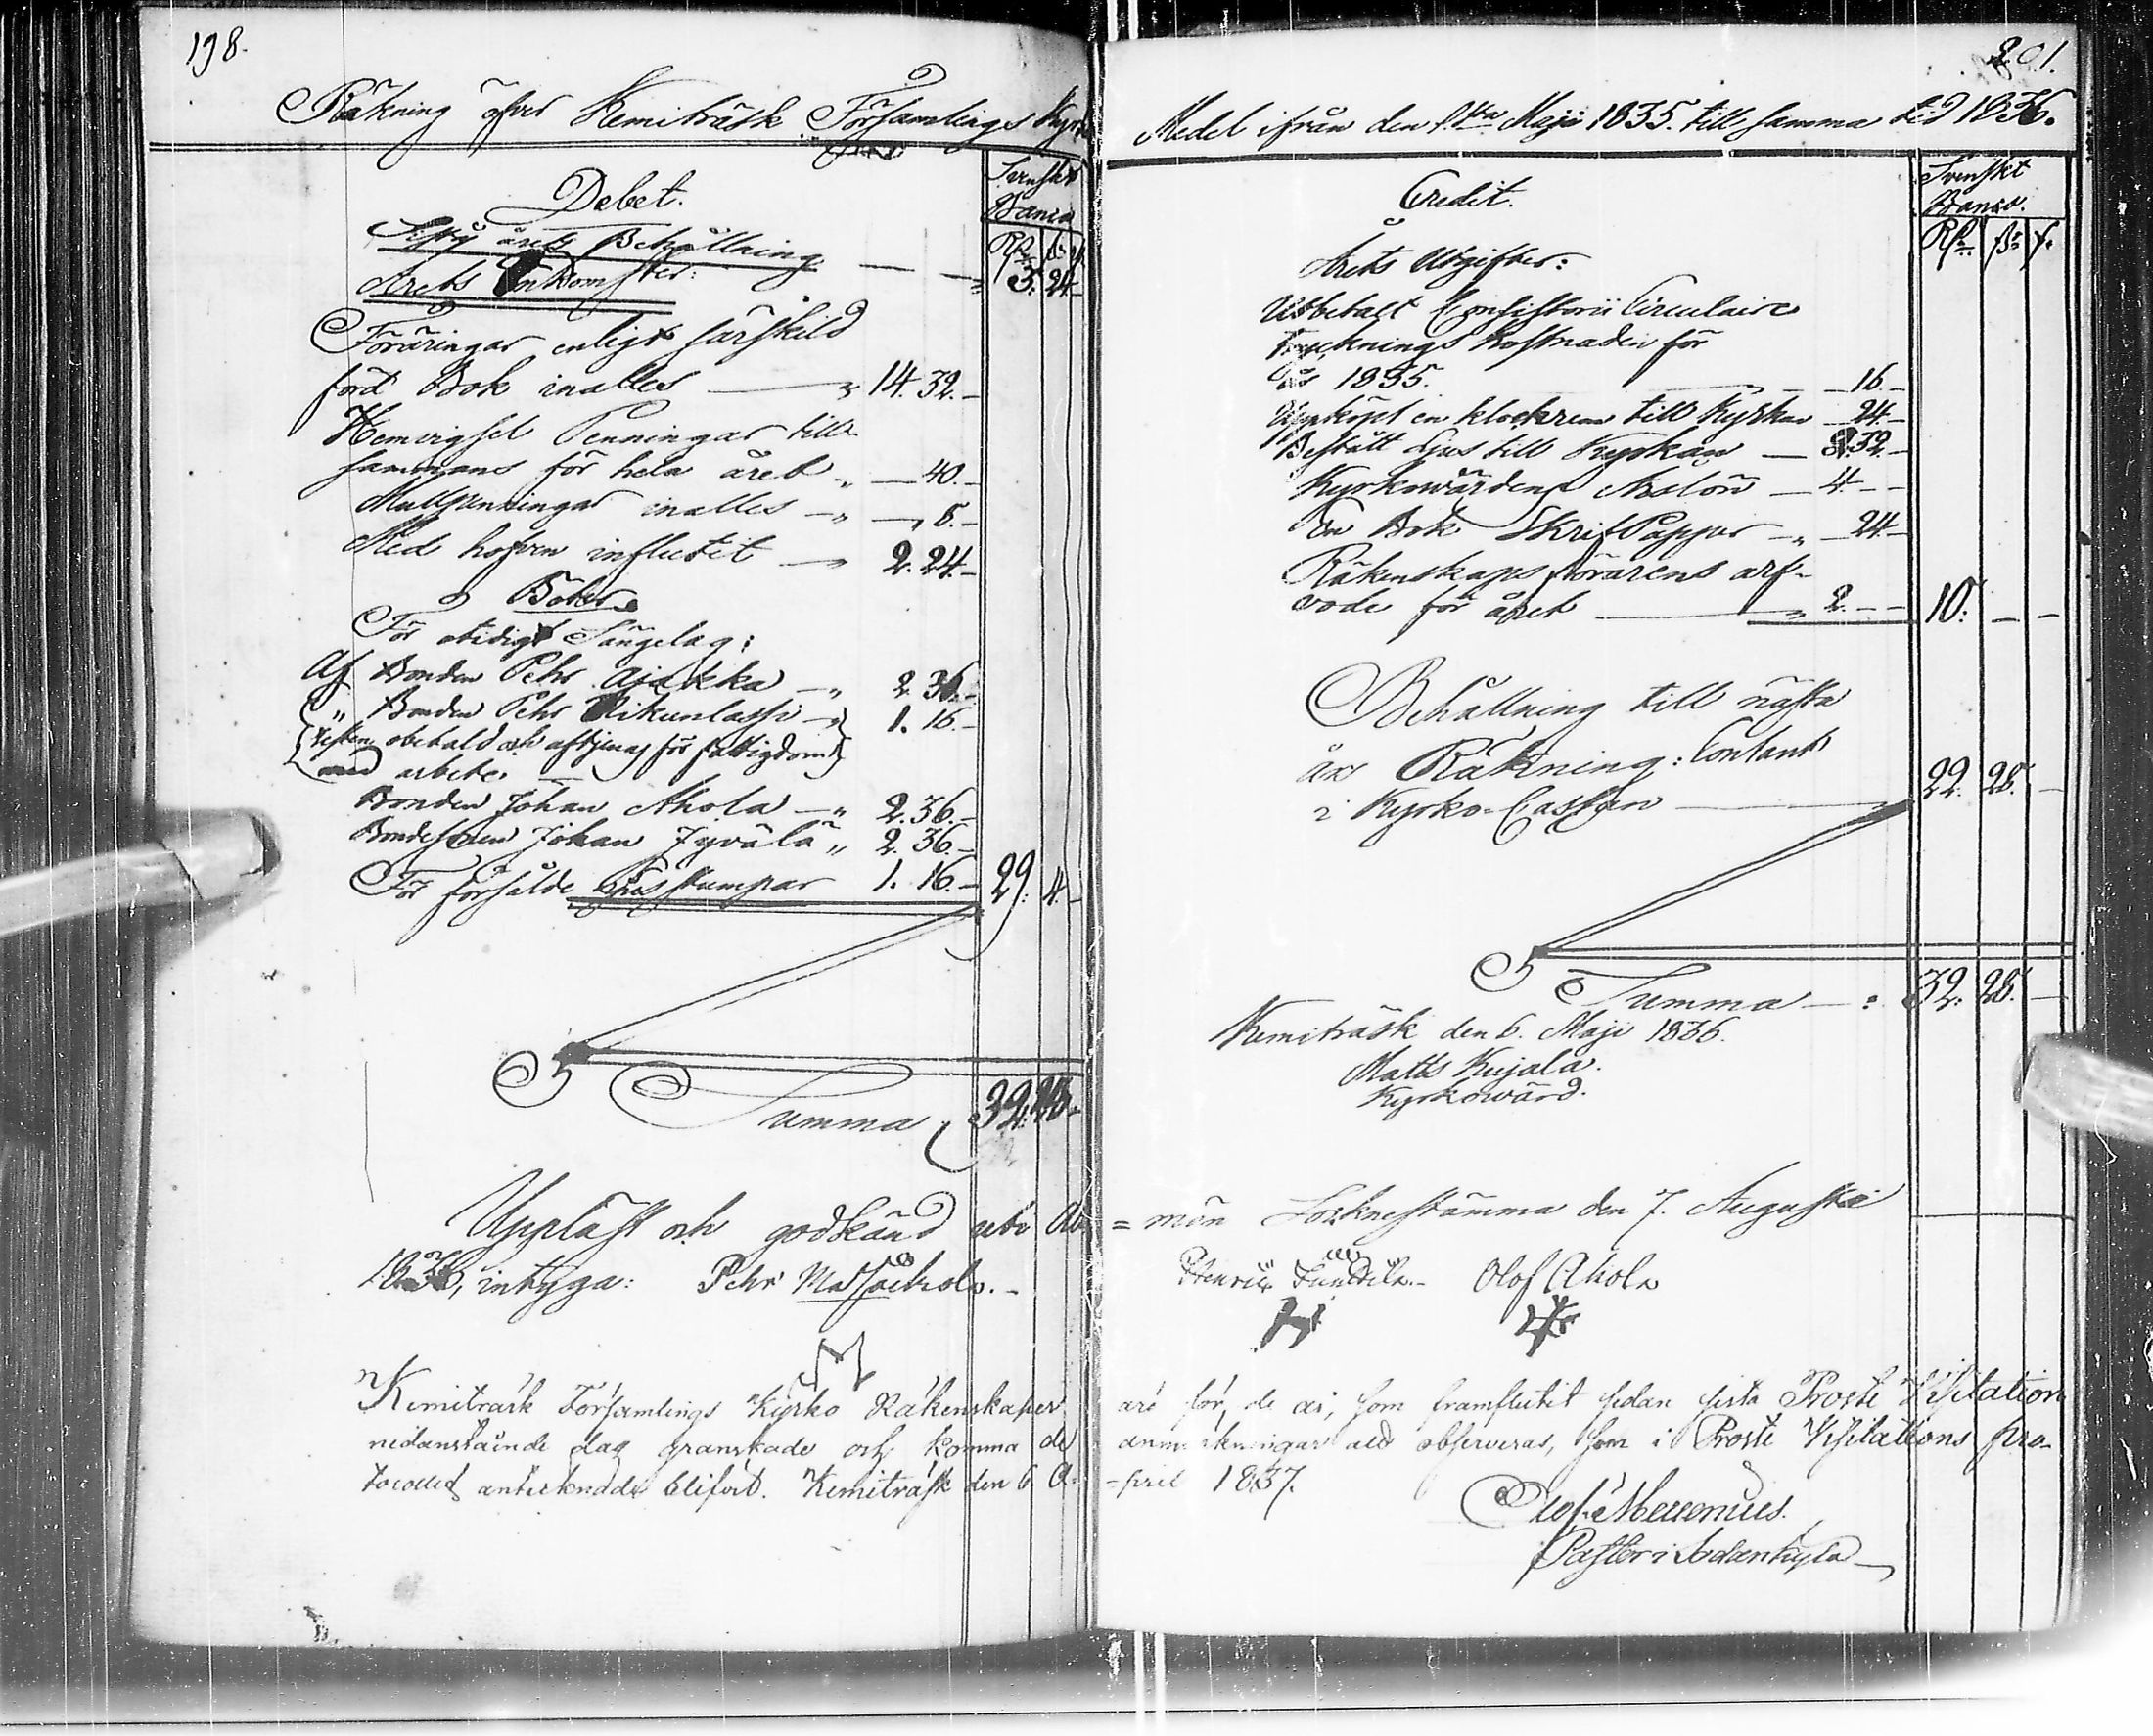 198.
Räkning öfver Kemiträsk Församlings Kyrko
Debet.
Svenskt
Banco
Rd. s. r.
Sistl. årets Behållning — — „ 3. 24.—
Årets Inkomster:
Föräringar enligt särskild
förd Bok inalles — „ 14. 32.—
Hemvigsel Penningar till-
sammans för hela året „ — 40.—
Mullpenningar inalles — „ — „ 8.—
Med hofven influtit — „ 2. 24.—
Böter
För otidigt Sängelag:
Af Bonden Pehr Ajakka — „ 2. 36.—
„ Bonden Pehr Rikunlassi — „ 1. 16.—
resten obetald och aftjenas för fattigdom
med arbete.
Bonden Johan Ahola — „ 2. 36.—
Bondesonen Johan Jyvälä „ 2. 36.—
För försålde ljusstumpar 1. 16.— 29. 4.—
Summa „ 32. 28.—
Uppläst och godkänd uti All-
1836, intyga: Pehr
Kemiträsk Församlings Kyrko Räkenskaper
nedanstående dag granskade och komma de
tocollet antecknade blifvit. Kemiträsk den 6 A-
201.
Medel ifrån den 1sta Maji 1835. till samma tid 1836.
Credit.
Svenskt
Banco.
Rd. s. r.
Årets Utgifter:
Utbetalt Consistorii Circulaire
trycknings kostnaden för
år 1835. — — 16.—
Uppköpt en klockrem till Kyrkan — 24.—
Bestått Ljus till Kyrkan — 2. 32.—
Kyrkovärdens Årslön — 4. — —
En Bok SkrifPapper — „ — 24.—
Räkenskapsförarens arf-
vode för året — „ 2. — — 10. — —
Behållning till nästa
års Räkning: Contant
i Kyrko-Cassan — 22. 28. —
Summa — : 32. 28. —
Kemiträsk den 6. Maji 1836.
Matts Kujala.
Kyrkovärd.
= män Socknestämma den 7. Augusti
Henric Olof Ahola
are för, de år, som framflutit sedan sista Prosti Visitation
anmärkningar att observeras, som i Prosti Visitations pro-
-pril 1837.
Olof Mellenius.
Pastor i Sodankylä